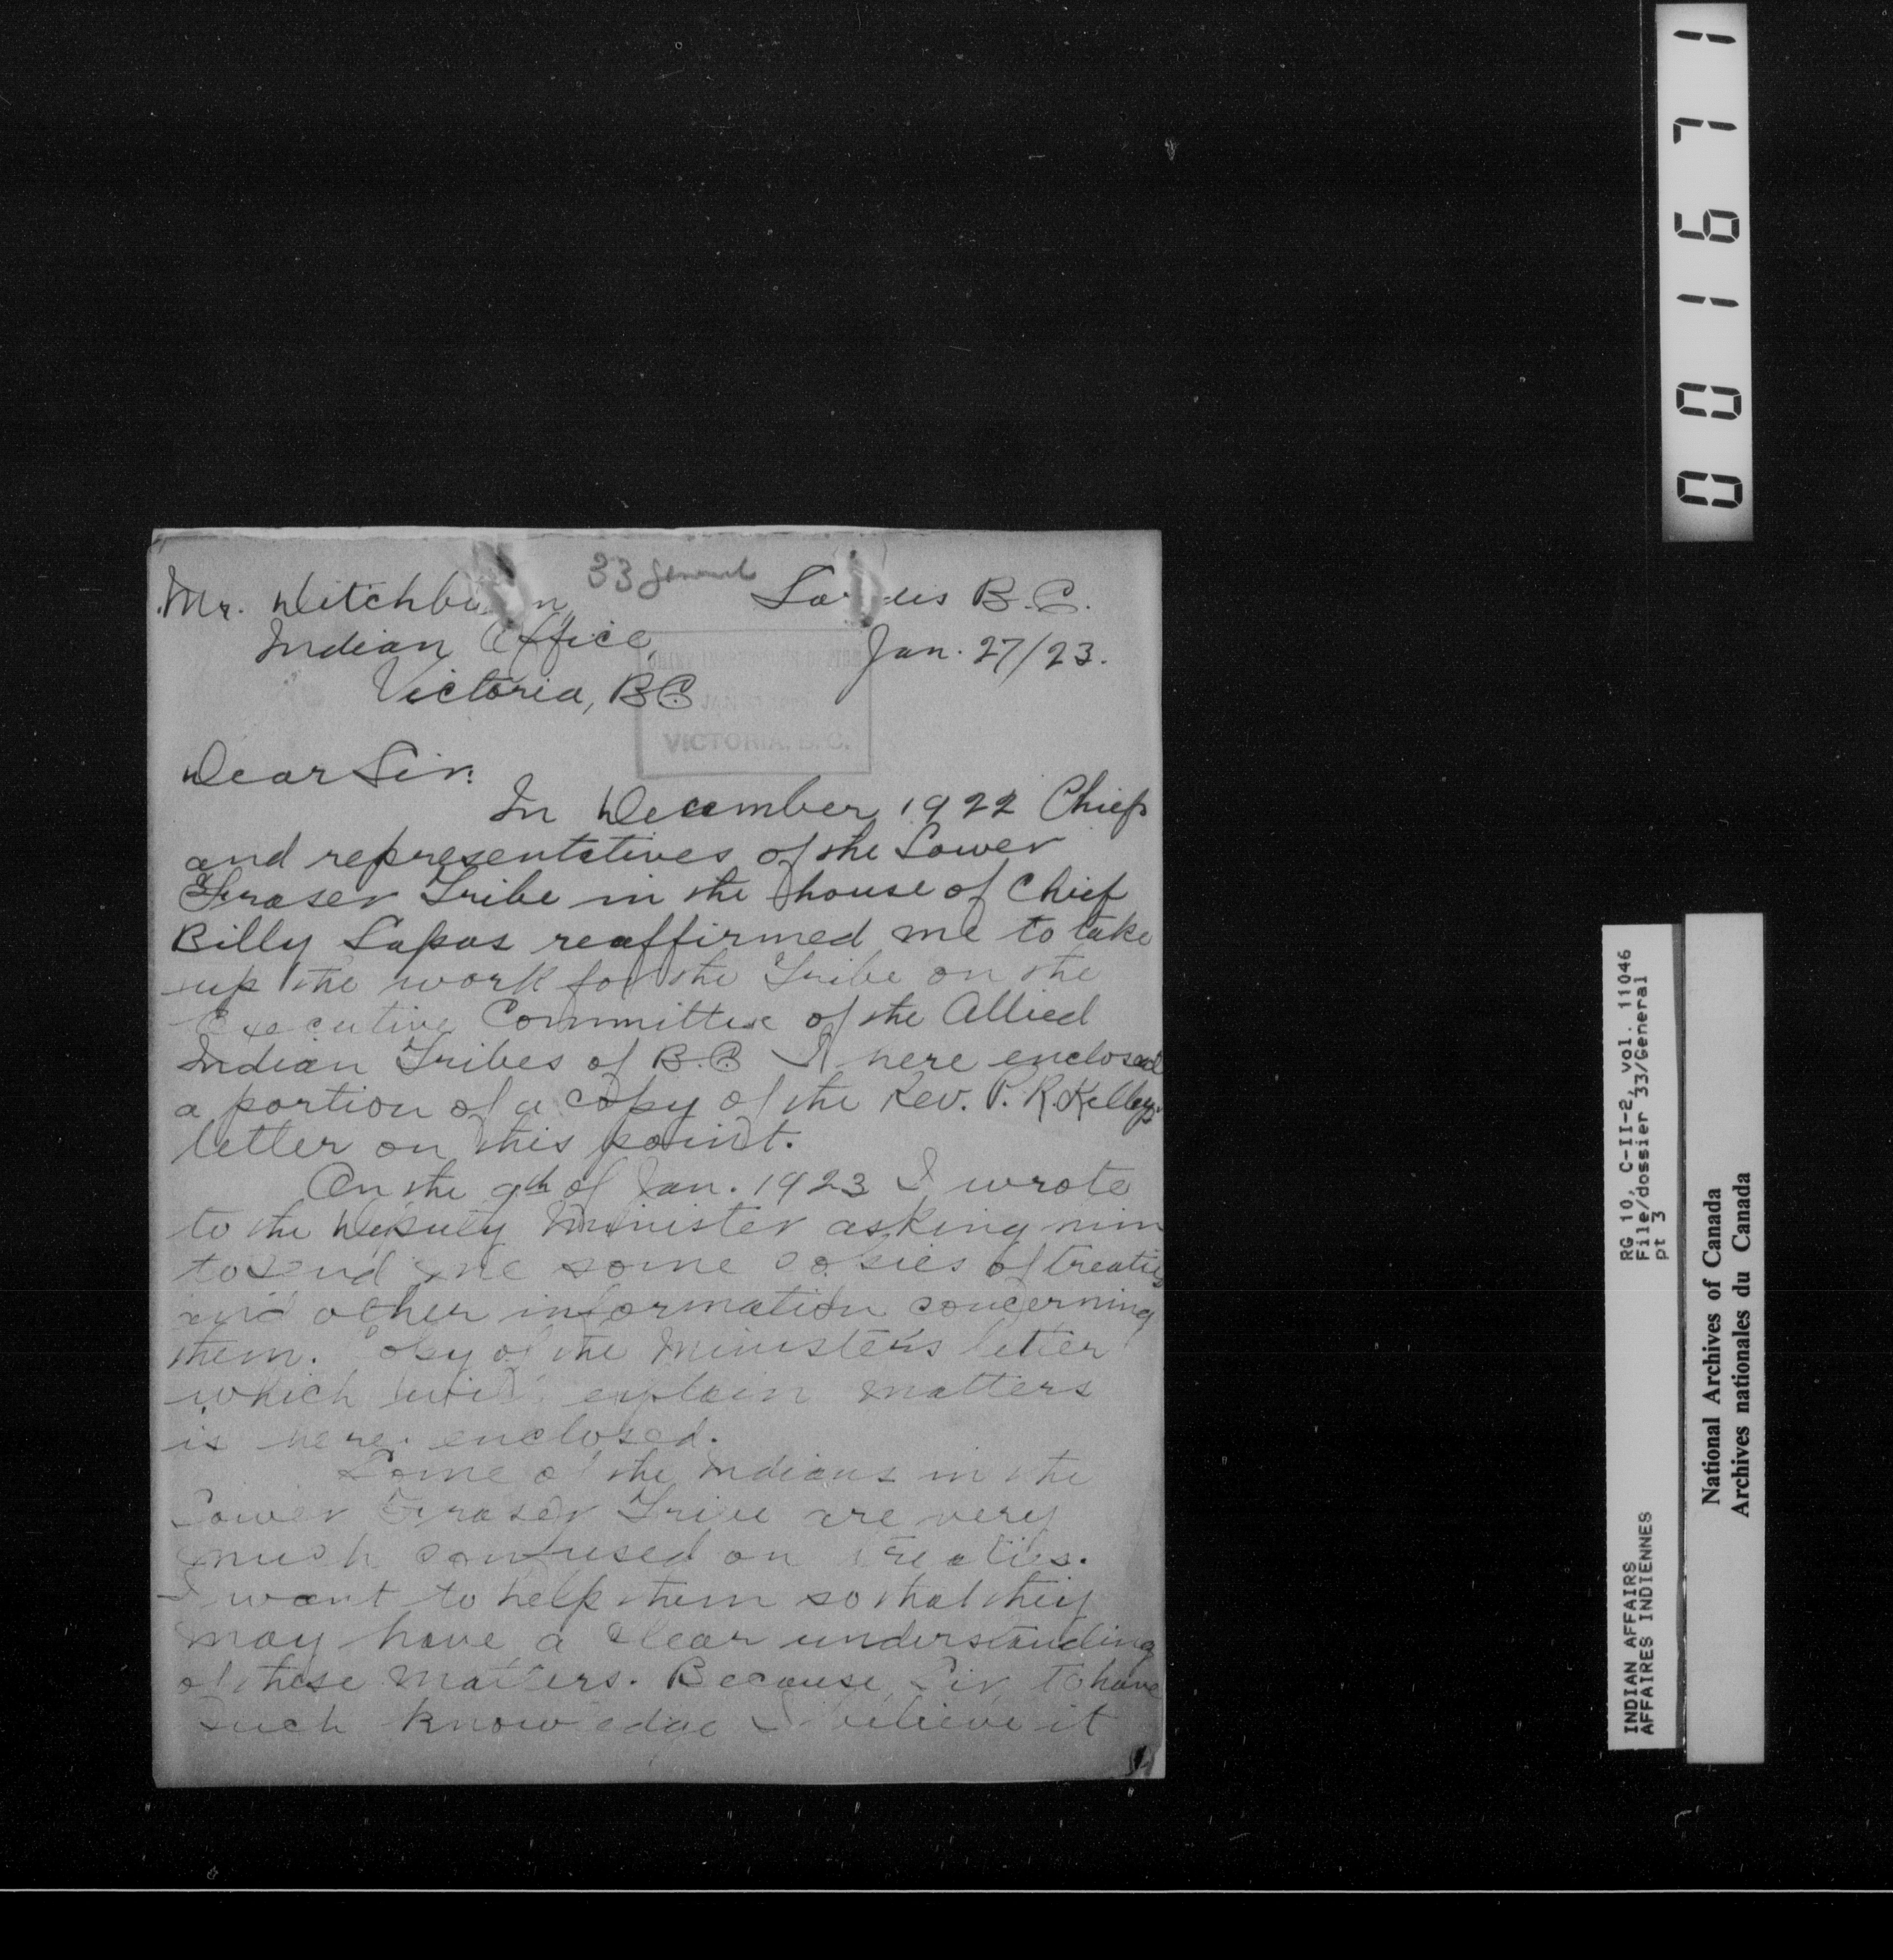 001671
33 General
Mr. Ditchburn
Sardis B.C.
Indian Office,
Jan. 27/23.
Victoria, BC
VICTORIA, B.C.
Dear Sir:
In December, 1922 Chiefs
and representatives of the Lower
Fraser Tribe in the house of Chief
Billy reaffirmed me to take
up the work for the Tribe on the
Executive Committee of the Allied
Indian Tribes of B.C. I here enclosed
a portion of a copy of the Rev. P. R. Kelley's
letter on this point.
On the 9th of Jan. 1923 I wrote
to the Deputy Minister asking him
to send me some copies of treaties
and other information concerning
them. Copy of the Minister's letter
which will explain matters
is here enclosed.
Some of the Indians in the
Lower Fraser Tribe are very
much confused on treaties.
I want to help them so that they
may have a clear understanding
of these matters. Because, Sir, to have
such knowledge I believe it
RG 10, C-II-2, vol. 11046
File/dossier 33/General
pt 3
INDIAN AFFAIRS
AFFAIRES INDIENNES
National Archives of Canada
Archives nationales du Canada